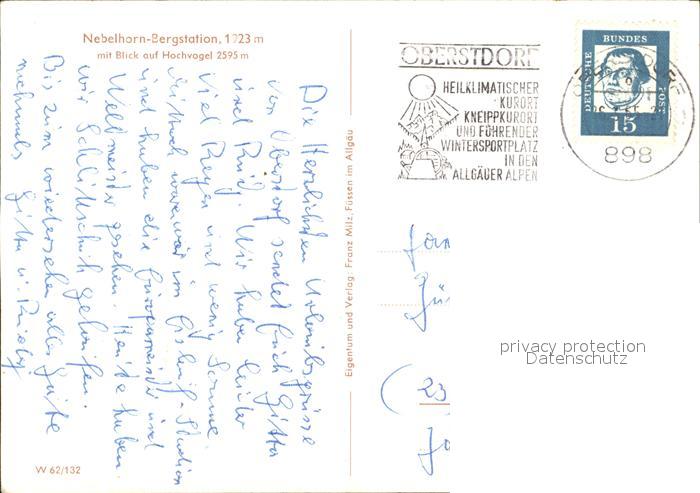 Nebelhorn-Bergstation, 1923 m
mit Blick auf Hochvogel 2595 m
Die Herzlichsten Urlaubsgrüsse
von Oberstdorf sendet Euch Gitta
und Rudi. Wir haben leider
viel Regen und wenig Sonne.
Mittwoch waren wir im Eislauf-Stadion
und haben die Europameister und
Weltmeister gesehen. Heute haben
wir Schlittschuh gelaufen.
Bis zum wiedersehen alles Gute
nochmals Gitta u.
W 62/132
Eigentum und Verlag: Franz Milz, Füssen im Allgäu
OBERSTDORF
HEILKLIMATISCHER
KURORT
KNEIPPKURORT
UND FÜHRENDER
WINTERSPORTPLATZ
IN DEN
ALLGÄUER ALPEN
DEUTSCHE BUNDESPOST
15
898
(23
privacy protection
Datenschutz